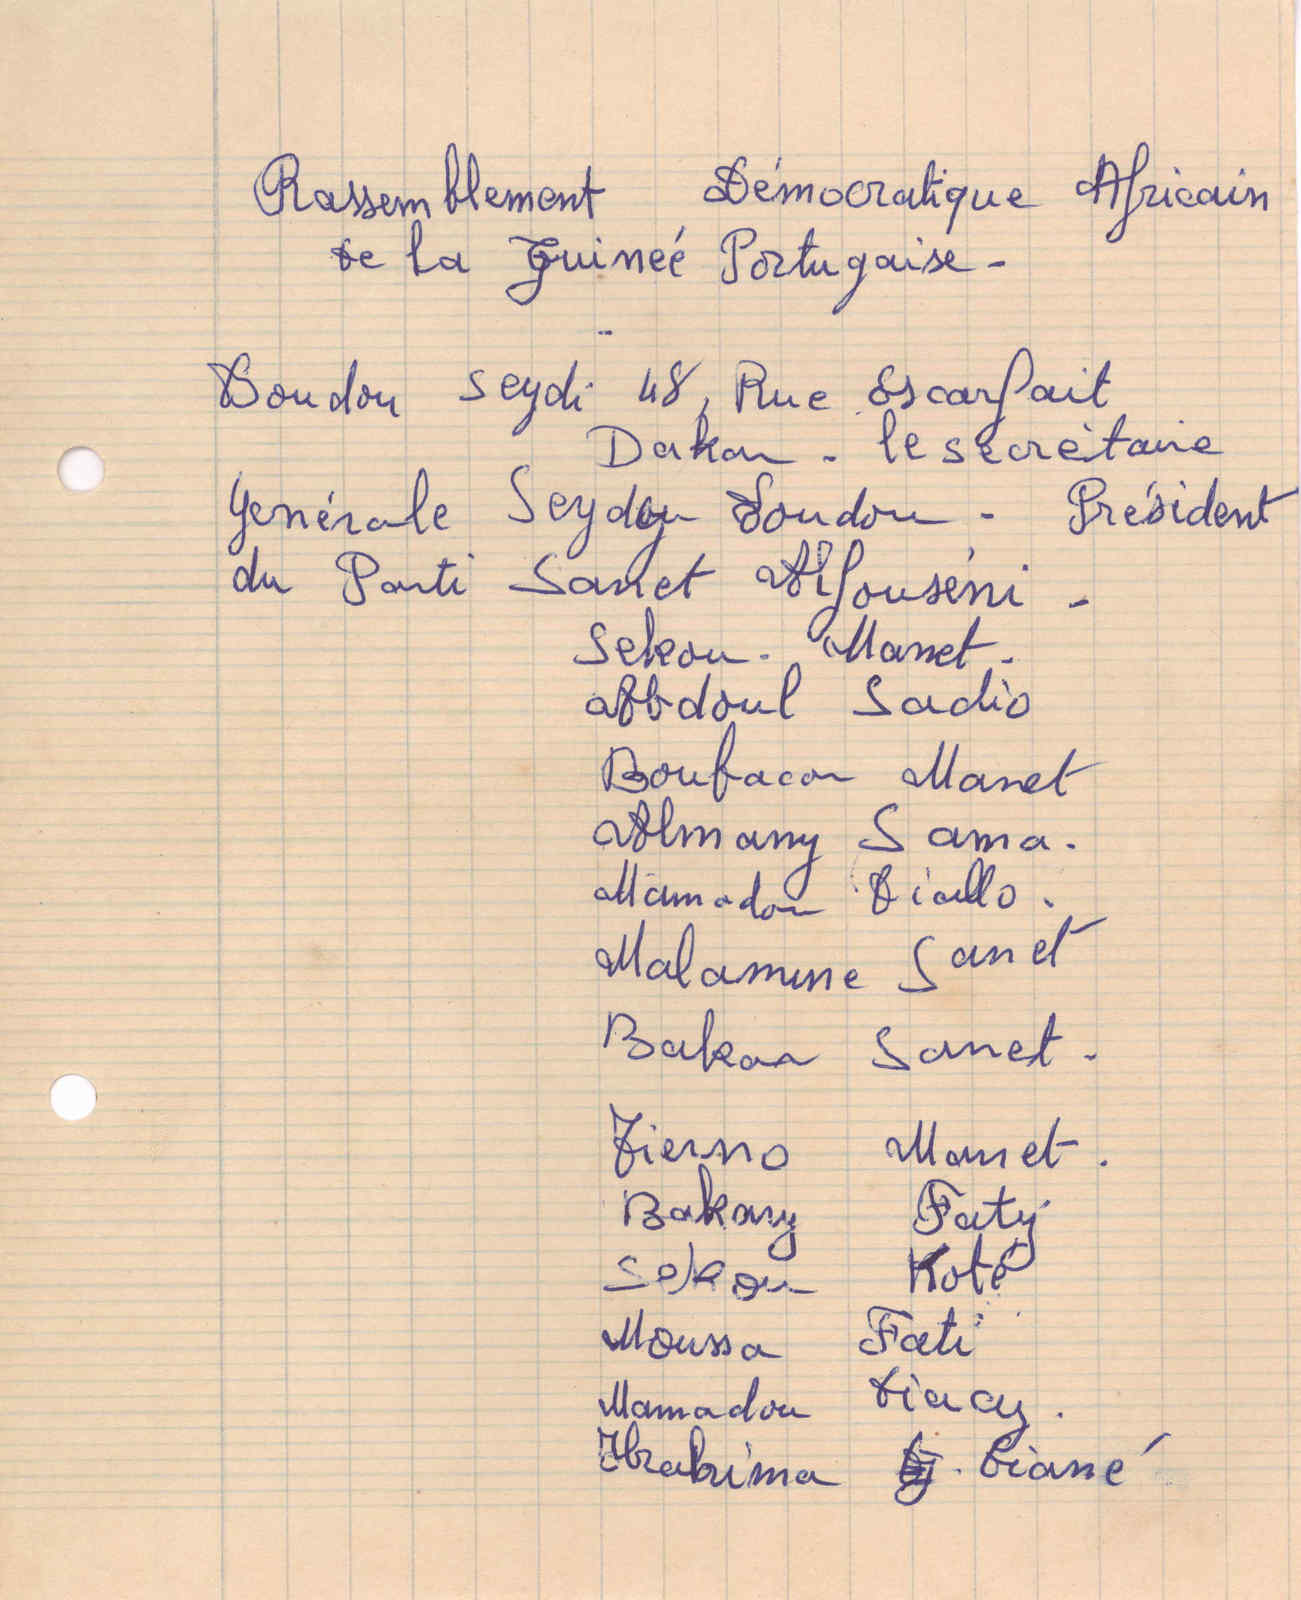 Rassemblement Démocratique Africain
de la Guineé Portugaise -
-
Doudou Seydi 48, Rue Escarfait
Dakar - le secrétaire
Genérale Seydou Doudou - Président
du Parti Sanet Alfouséni -
Sekou - Manet -
Abdoul Sadio
Boubacar Manet
Almany Sama.
Mamadou Diallo.
Malamine Sanet
Bakar Sanet -
Tierno Manet.
Bakary Faty
Sekou Koté
Moussa Fati
Mamadou
Ibrahima Biané